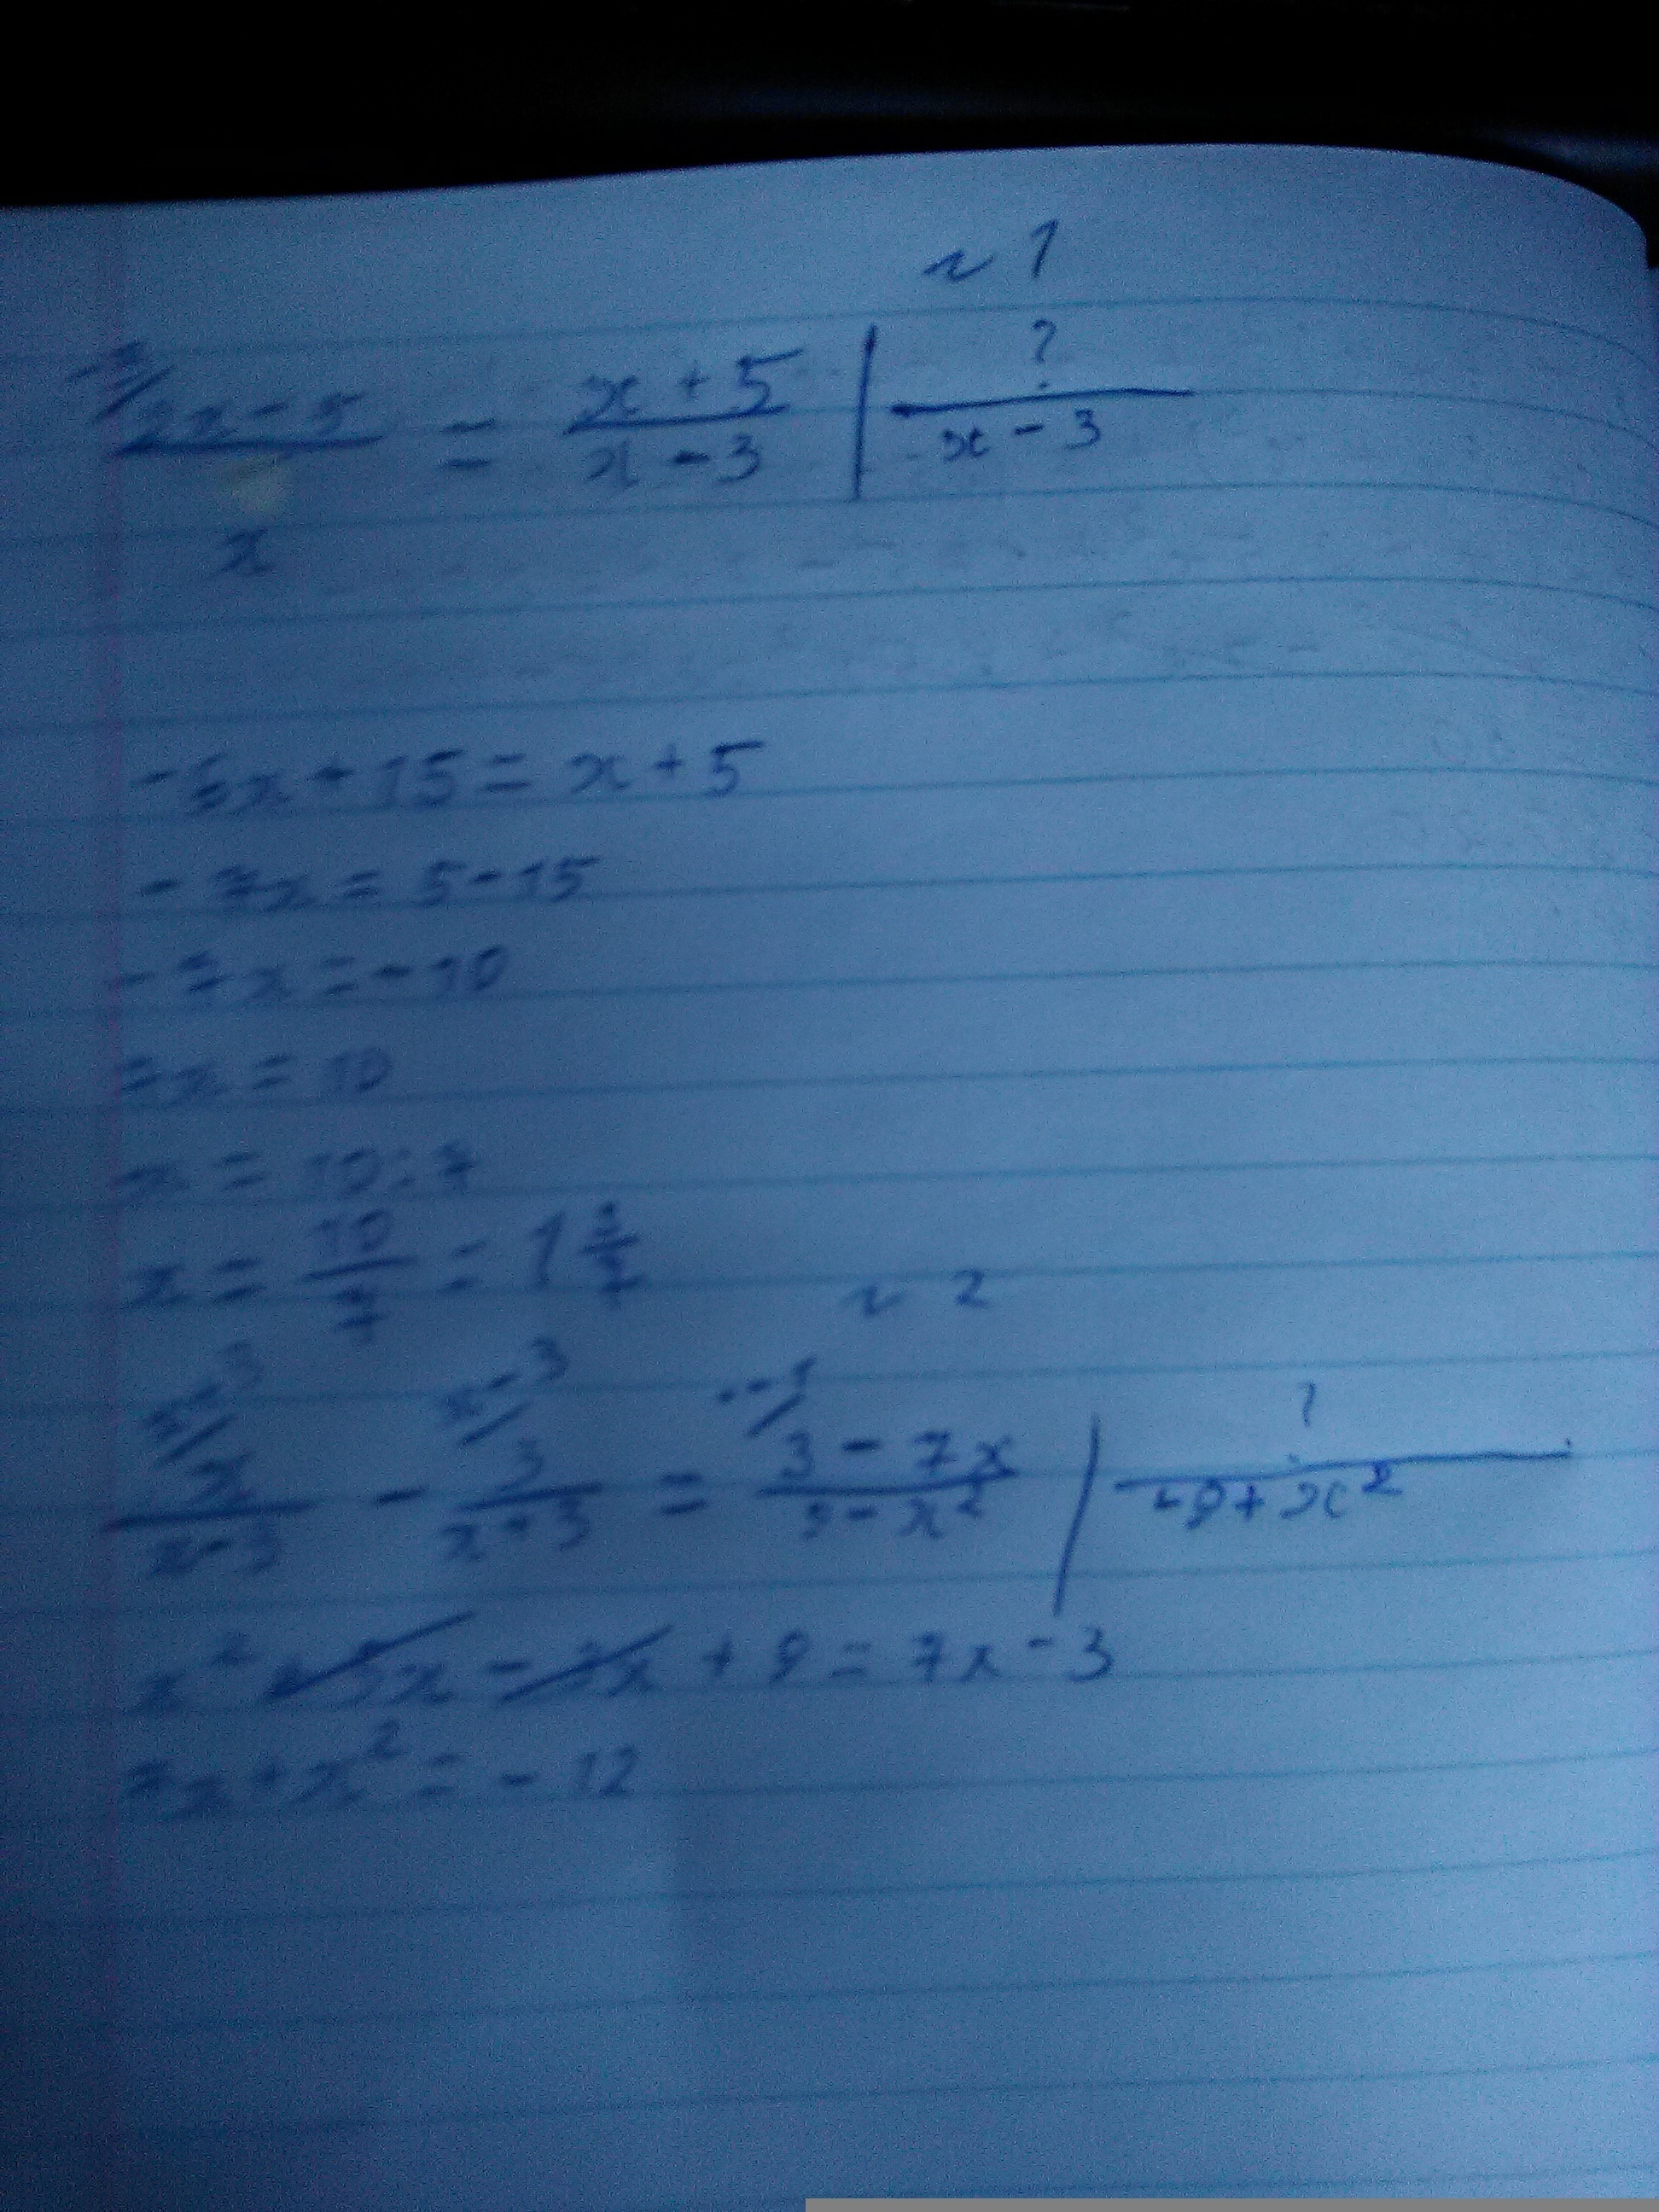 № 1
(2x - 5)/x = (x + 5)/(x - 3) | ?/(x - 3)
- 6x + 15 = x + 5
- 7x = 5 - 15
- 7x = - 10
x = 10
x = 10 : 7
x = 10/7 = 1 3/7
№ 2
x-3/ x/(x - 3) - x-3/ 3/(x + 3) = -1/ (3 - 7x)/(9 - x²) | ?/(-9 + x²)
x² + 3x - 3x + 9 = 7x - 3
7x + x² = - 12